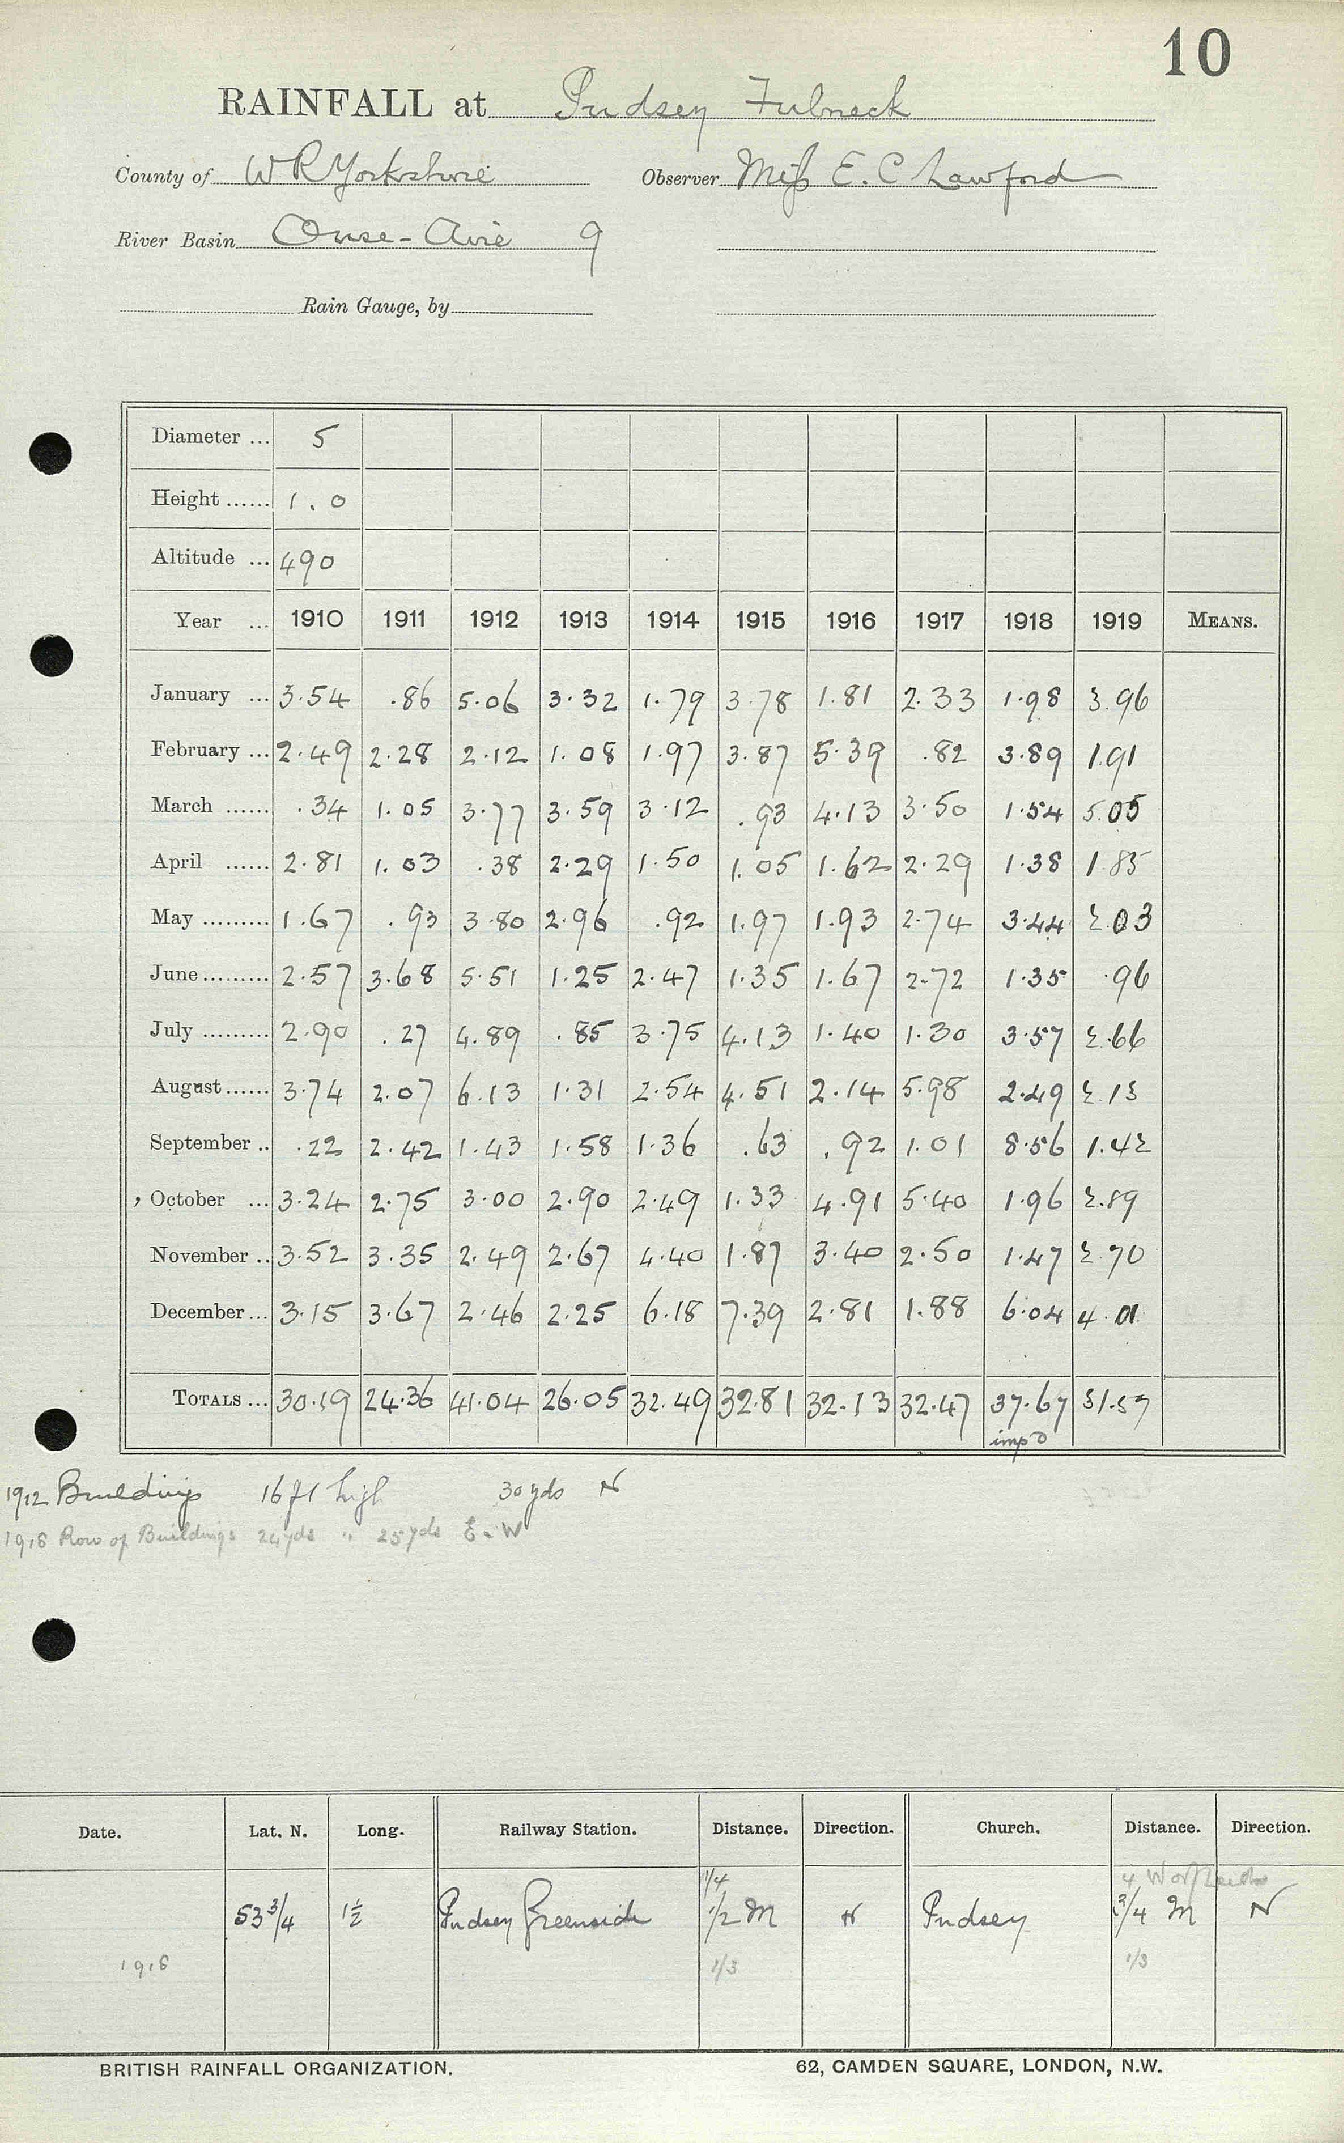 10
RAINFALL at Pudsey Fulneck
County of W R Yorkshire Observer Miss E. C Lawford
River Basin Ouse - Aire 9
Rain Gauge, by
Diameter ... 5
Height ...... 1.0
Altitude ... 490
Year ... 1910 1911 1912 1913 1914 1915 1916 1917 1918 1919 MEANS.
January ... 3.54 .86 5.06 3.32 1.79 3.78 1.81 2.33 1.98 3.96
February ... 2.49 2.28 2.12 1.08 1.97 3.87 5.39 .82 3.89 1.91
March ...... .34 1.05 3.77 3.59 3.12 .93 4.13 3.50 1.54 5.05
April ...... 2.81 1.03 .38 2.29 1.50 1.05 1.62 2.29 1.38 1.85
May ......... 1.67 .93 3.80 2.96 .92 1.97 1.93 2.74 3.44 2.03
June ......... 2.57 3.68 5.51 1.25 2.47 1.35 1.67 2.72 1.35 .96
July ......... 2.90 .27 4.89 .85 3.75 4.13 1.40 1.30 3.57 2.66
August ...... 3.74 2.07 6.13 1.31 2.54 4.51 2.14 5.98 2.49 2.13
September .. .22 2.42 1.43 1.58 1.36 .63 .92 1.01 8.56 1.42
October ... 3.24 2.75 3.00 2.90 2.49 1.33 4.91 5.40 1.96 2.89
November .. 3.52 3.35 2.49 2.67 4.40 1.87 3.40 2.50 1.47 2.70
December ... 3.15 3.67 2.46 2.25 6.18 7.39 2.81 1.88 6.04 4.01
TOTALS ... 30.19 24.36 41.04 26.05 32.49 32.81 32.13 32.47 37.67 31.57
imp d
1912 Buildings 16 ft high 30 yds N
1918 Row of Buildings 24 yds " 25 yds E. W
Date. Lat. N. Long. Railway Station. Distance. Direction. Church. Distance. Direction.
1/4 4 W of Leeds
53 3/4 1 1/2 Pudsey Greenside 1/2 M N Pudsey 3/4 M N
1918 1/3 1/3
BRITISH RAINFALL ORGANIZATION. 62, CAMDEN SQUARE, LONDON, N.W.